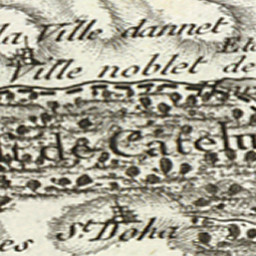 la Ville dannet
Ville noblet de
de Catelu
St. Doha
es